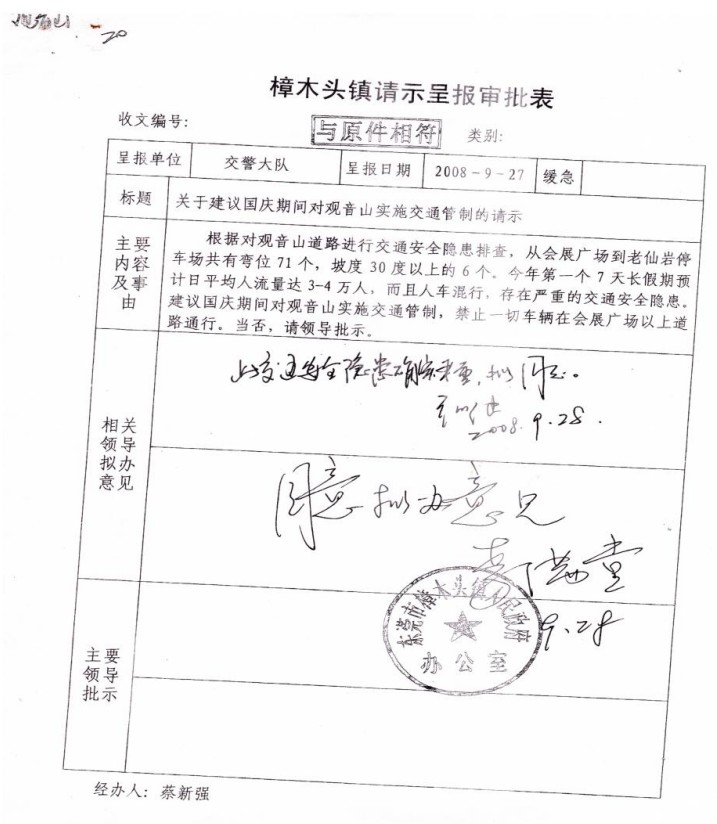 樟木头镇请示呈报审批表
收文编号:
与原件相符
类别:
呈报单位 交警大队 呈报日期 2008-9-27 缓急
标题 关于建议国庆期间对观音山实施交通管制的请示
主要内容及事由
根据对观音山道路进行交通安全隐患排查，从会展广场到老仙岩停
车场共有弯位71个，坡度30度以上的6个。今年第一个7天长假期预
计日平均人流量达3-4万人，而且人车混行，存在严重的交通安全隐患。
建议国庆期间对观音山实施交通管制，禁止一切车辆在会展广场以上道
路通行。当否，请领导批示。
相关领导拟办意见
交通安全隐患确实严重，拟同意。
2008.9.28.
同意拟办意见
9.28
东莞市樟木头镇人民政府
办公室
主要领导批示
经办人：蔡新强